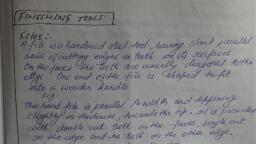 FINISHING TOOLS:
Files:-
A file is a hardened steel tool, having slant parallel
rows of cutting edges or teeth on its surfaces
On the faces the teeth are usually diagonal to the
edge One end of the file is shaped to fit
into a wooden handle
The hand file is parallel in width and tapering
slightly in thickness, towards the tip. It is provided
with double cut teeth on the faces, single cut
on one edge and no teeth on the other edge.